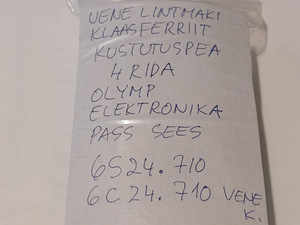 VENE LINTMAKI
KLAASFERRIIT
KUSTUTUSPEA
4 RIDA
OLYMP
ELEKTRONIKA
PASS SEES
6S24.710
6C24.710 VENE
K.